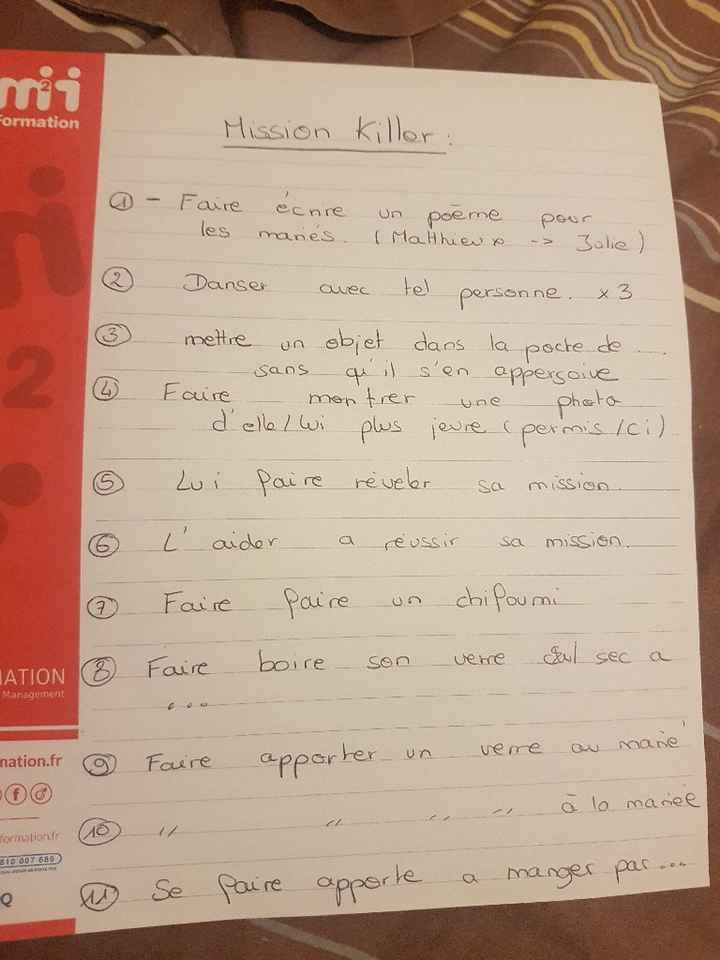 m2i
Formation
Mission Killer :
① - Faire écrire un poème pour
les mariés. (Matthieu x -> Julie)
② Danser avec tel personne. x 3
③ mettre un objet dans la poche de ...
sans qu'il s'en apperçoive
④ Faire montrer une photo
d'elle / lui plus jeune (permis / ci)
⑤ Lui faire réveler sa mission.
⑥ L'aider a réussir sa mission.
⑦ Faire faire un chifoumi
⑧ Faire boire son verre sec a
...
⑨ Faire apporter un verre au marié
⑩ " " " " à la mariée
⑪ Se faire apporte a manger par ...
2
MATION
Management
mation.fr
formation.fr
810 007 689